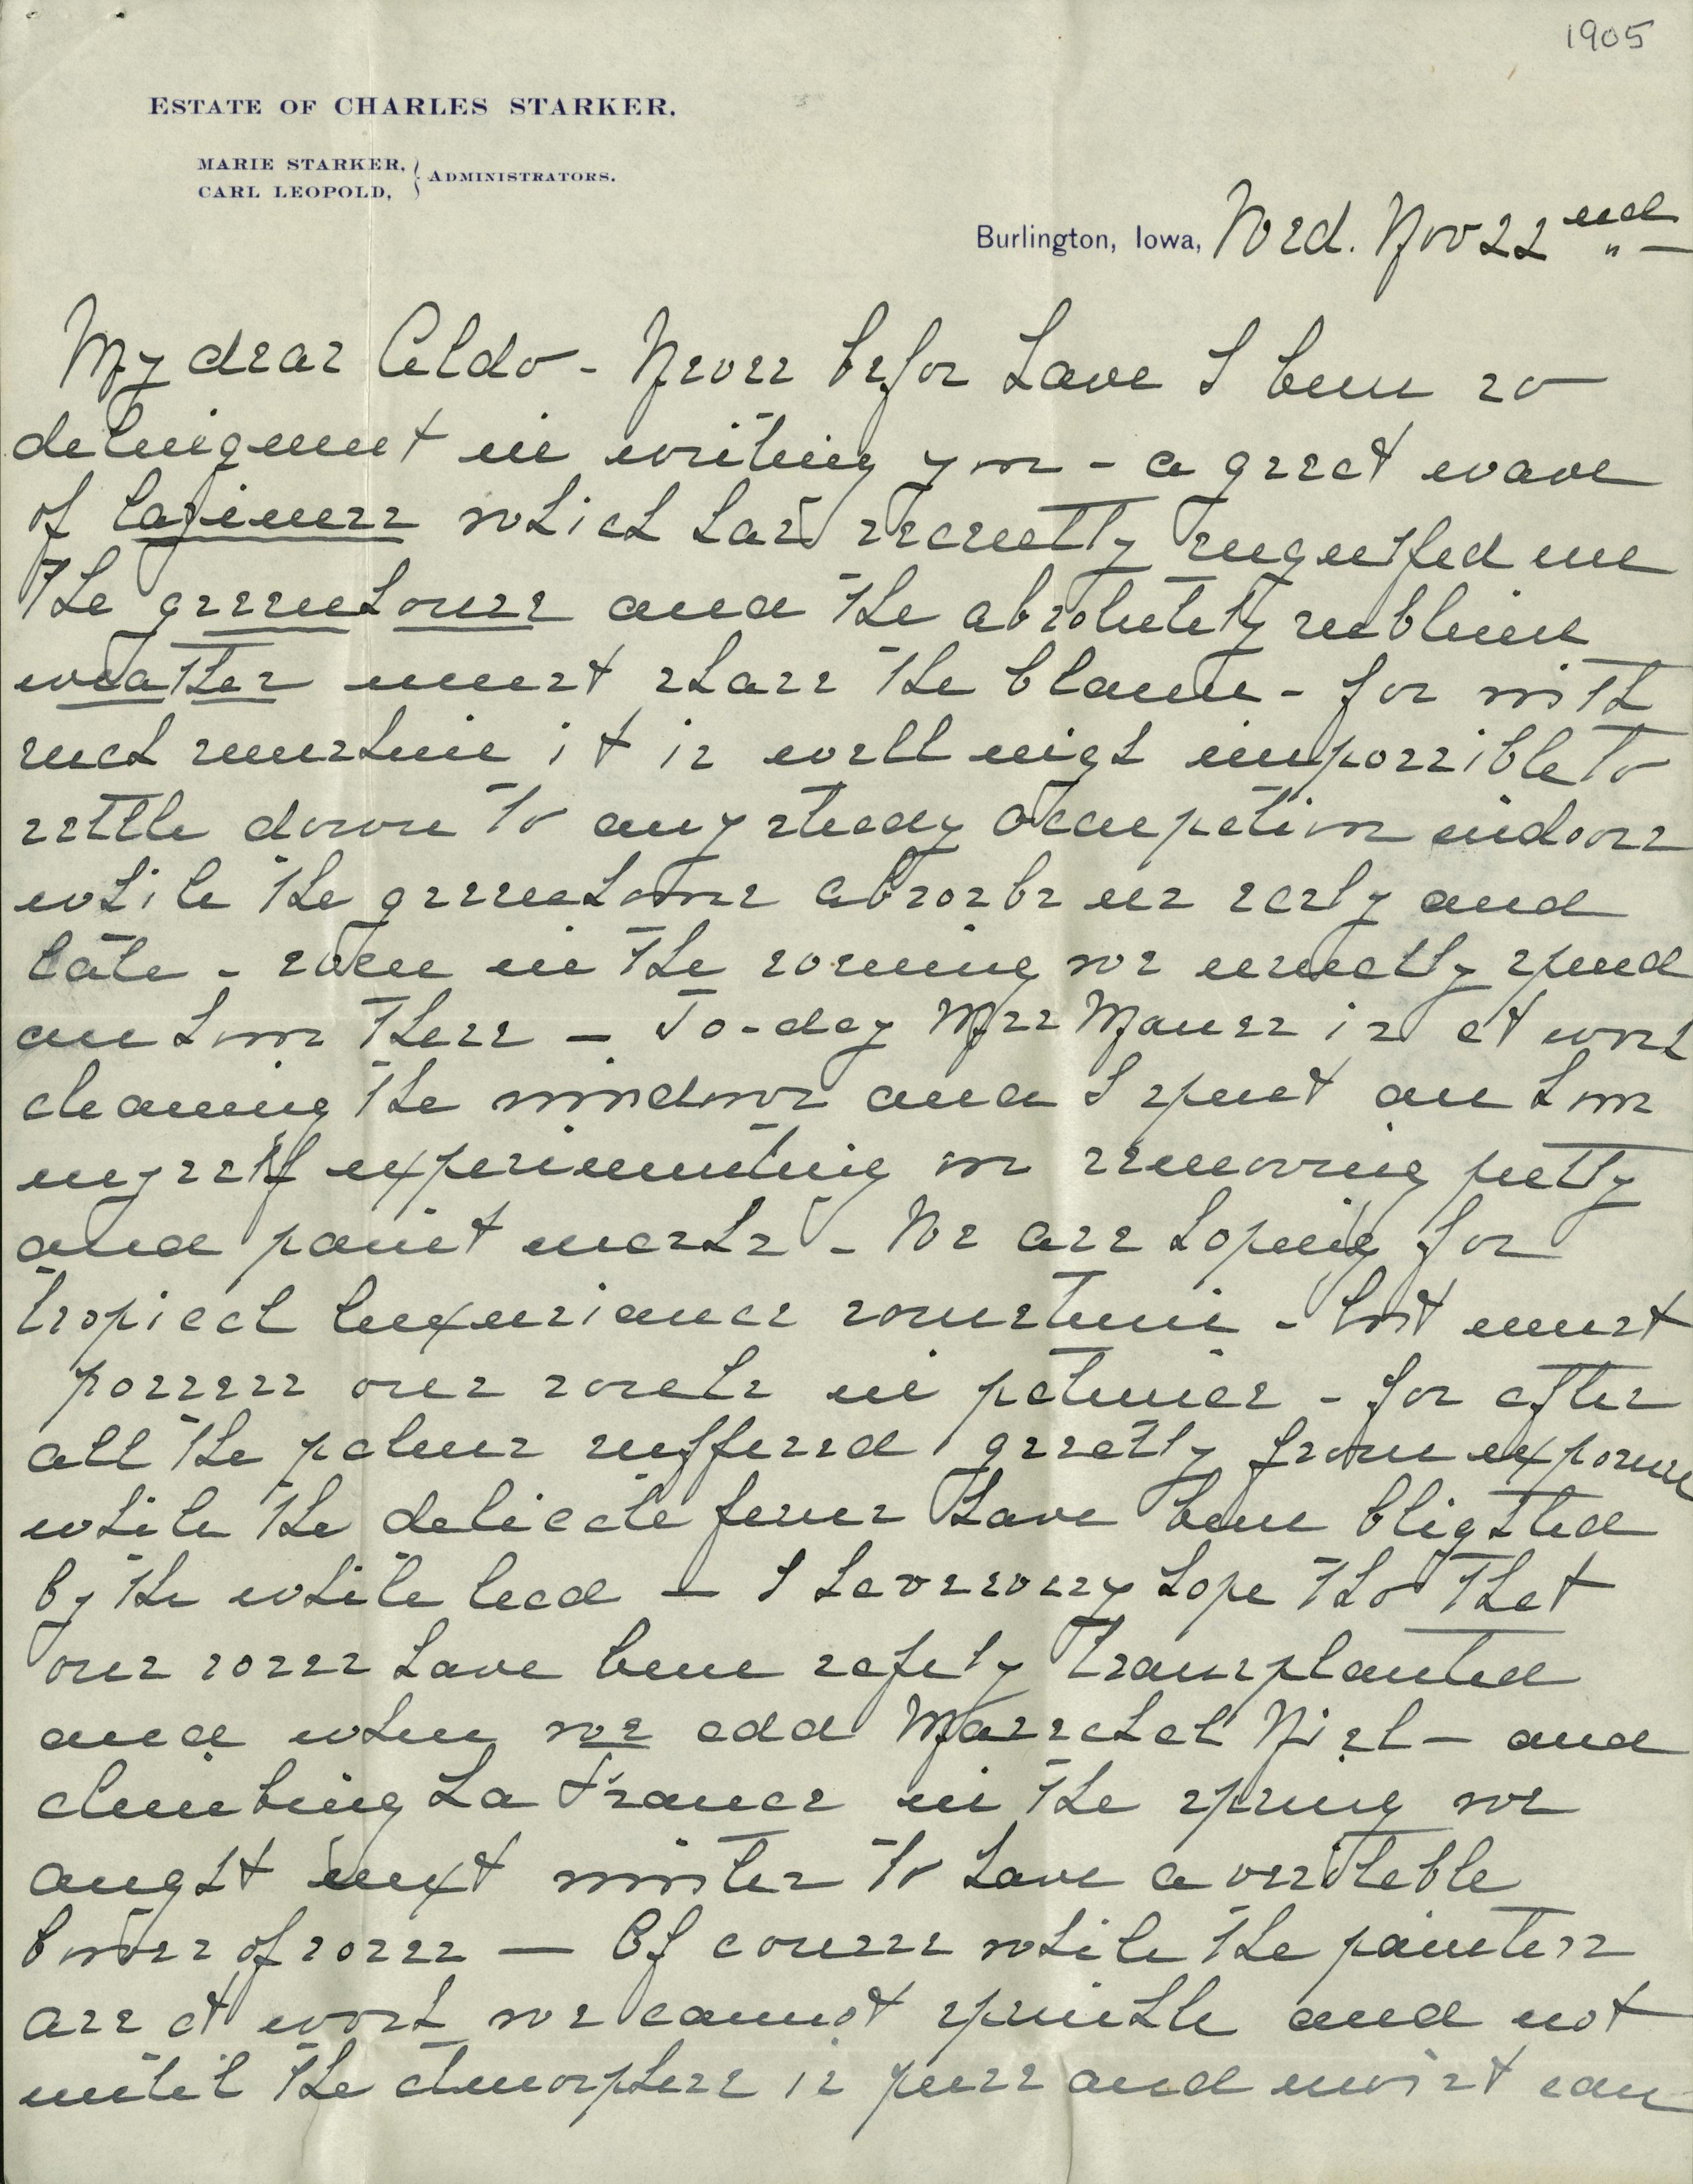 1905
ESTATE OF CHARLES STARKER.
MARIE STARKER,
CARL LEOPOLD, } ADMINISTRATORS.
Burlington, Iowa, Wed. Nov 22nd
My dear Aldo - Never befor have I been so
delinigent in writing you - a great wave
of laziness which has recently engulfed me
the greenhouse and the absolutely sublime
weather must share the blame - for with
such sunshine it is well nigh impossible to
settle down to any steady occupation indoors
while the greenhouse absorbs us early and
late - even in the evening we usually spend
an hour there - To-day Mrs Maner is at work
cleaning the windows and I spent an hour
myself experimenting on removing putty
and paint marks - We are hoping for
tropical luxuriance sometime - but must
possess our souls in patience - for after
all the palms suffered greatly from exposure
while the delicate ferns have been blighted
by the white lead - I have every hope tho that
our roses have been safely transplanted
and when we add Marechal Niel - and
climbing La France in the spring we
aught next winter to have a veritable
bower of roses - Of course while the painters
are at work we cannot sprinkle and not
until the atmosphere is pure and moist can